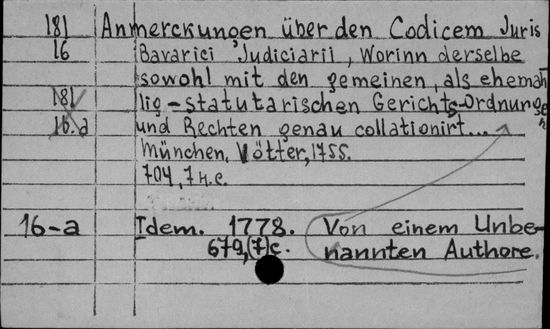 181 Anmerckungen über den Codicem Juris
16 Bavarici Judiciarii, Worinn derselbe
sowohl mit den gemeinen, als ehemah
181 lig-statutarischen Gerichts-Ordnungen
16.a und Rechten genau collationirt...
München, Vötter, 1755.
704, 7 н.с.
16-a Idem. 1778. Von einem Unbe-
679,(7)c. nannten Authore.